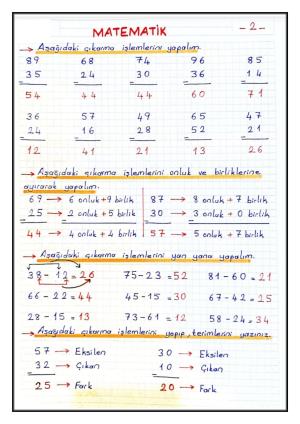 MATEMATİK -2-
→ Aşağıdaki çıkarma işlemlerini yapalım.
89 68 74 96 85
35 24 30 36 14
54 44 44 60 71
36 57 49 65 47
24 16 28 52 21
12 41 21 13 26
→ Aşağıdaki çıkarma işlemlerini onluk ve birliklerine
ayırarak yapalım.
69 → 6 onluk + 9 birlik 87 → 8 onluk + 7 birlik
25 → 2 onluk + 5 birlik 30 → 3 onluk + 0 birlik
44 → 4 onluk + 4 birlik 57 → 5 onluk + 7 birlik
→ Aşağıdaki çıkarma işlemlerini yan yana yapalım.
38 - 12 = 26 75 - 23 = 52 81 - 60 = 21
66 - 22 = 44 45 - 15 = 30 67 - 42 = 25
28 - 15 = 13 73 - 61 = 12 58 - 24 = 34
→ Aşağıdaki çıkarma işlemlerini yapıp, terimlerini yazınız.
57 → Eksilen 30 → Eksilen
32 → Çıkan 10 → Çıkan
25 → Fark 20 → Fark